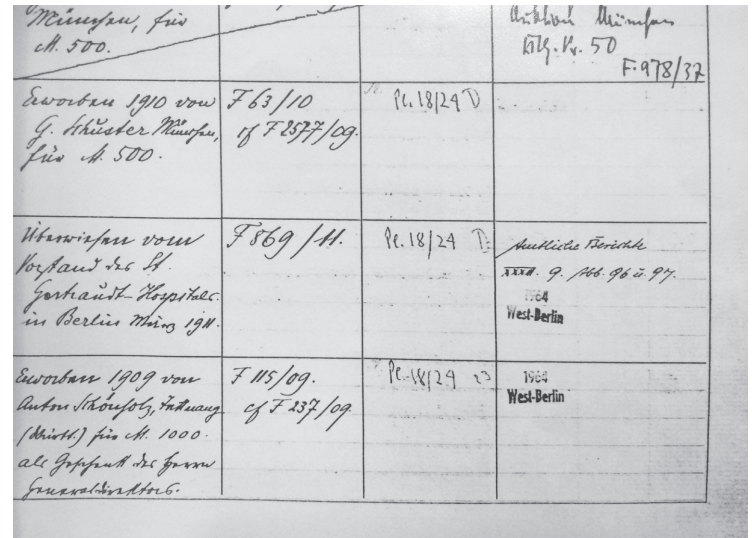 München, für
M. 500.
Auktion München
Ktlg. Nr. 50
F. 978/37
Erworben 1910 von
G. Schuster München,
für M. 500.
F 63/10
cf F 2577/09.
Pl. 18/24 D
Überwiesen vom
Vorstand des St.
Gertraudt-Hospitals
in Berlin März 1911.
F 869/11.
Pl. 18/24 D
Amtliche Berichte
XXXII. 9. Abb. 96 u. 97.
1964
West-Berlin
Erworben 1909 von
Anton Schönholz, Tettnang
(Württ.) für M. 1000.
als Geschenk des Herrn
Generaldirektors.
F 115/09.
cf F 237/09
Pl. 18/24
1964
West-Berlin